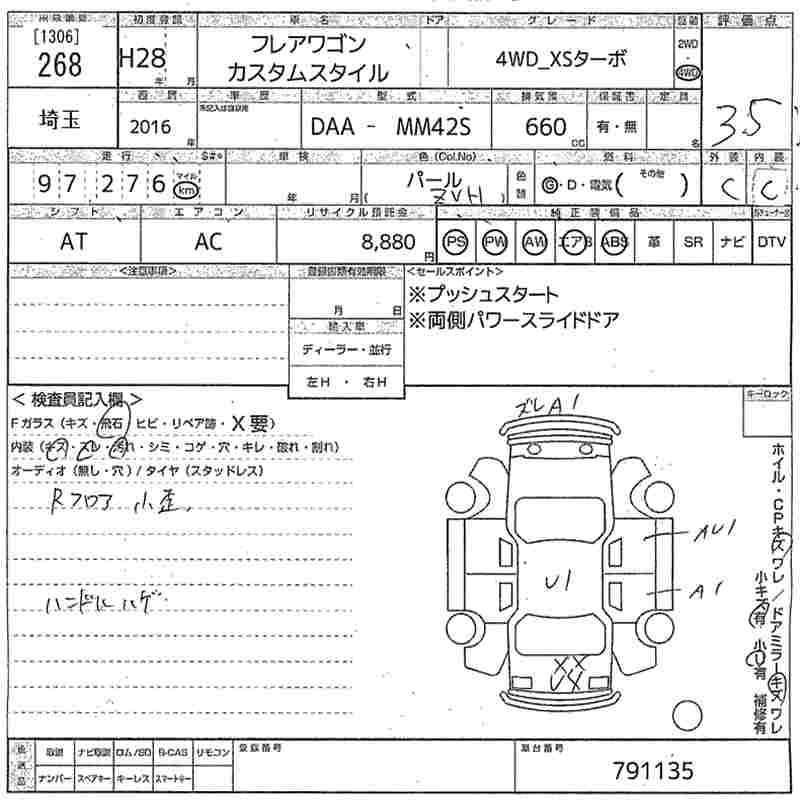 出品番号 初度登録 車名 ドア グレード 駆動 評価点
[1306]
268
H28
年 月
フレアワゴン
カスタムスタイル
4WD_XSターボ
2WD
4WD
3.5
埼玉
西暦 車歴 型式 排気量 保証書 定員
2016
年
DAA - MM42S
660
cc
有・無
名
走行 車検 色(Col.No) 燃料 外装 内装
97276
マイル
km
年 月
パール
ZVH
( )
色替
G・D・電気( その他 )
C
C
シフト エアコン リサイクル預託金 純正装備品
AT
AC
8,880
円
PS PW AW エアB ABS 革 SR ナビ DTV
<注意事項>
登録書類有効期限
月 日
輸入車
ディーラー・並行
左H ・ 右H
<セールスポイント>
※プッシュスタート
※両側パワースライドドア
< 検査員記入欄 >
Fガラス (キズ・飛石 ヒビ・リペア跡・X要)
内装 (キズ・スレ・汚れ・シミ・コゲ・穴・キレ・破れ・割れ)
オーディオ (無し・穴) / タイヤ (スタッドレス)
Rフロア 小歪
ハンドル ハゲ
キーロック
ズレA1
AU1
A1
U1
XX
U4
ホイル・CPキズワレ / ドアミラーキズワレ
小キズ有 小U有 補修有
取説 ナビ取説 ロム/SD B-CAS リモコン
ナンバー スペアキー キーレス スマートキー
登録番号
車台番号
791135